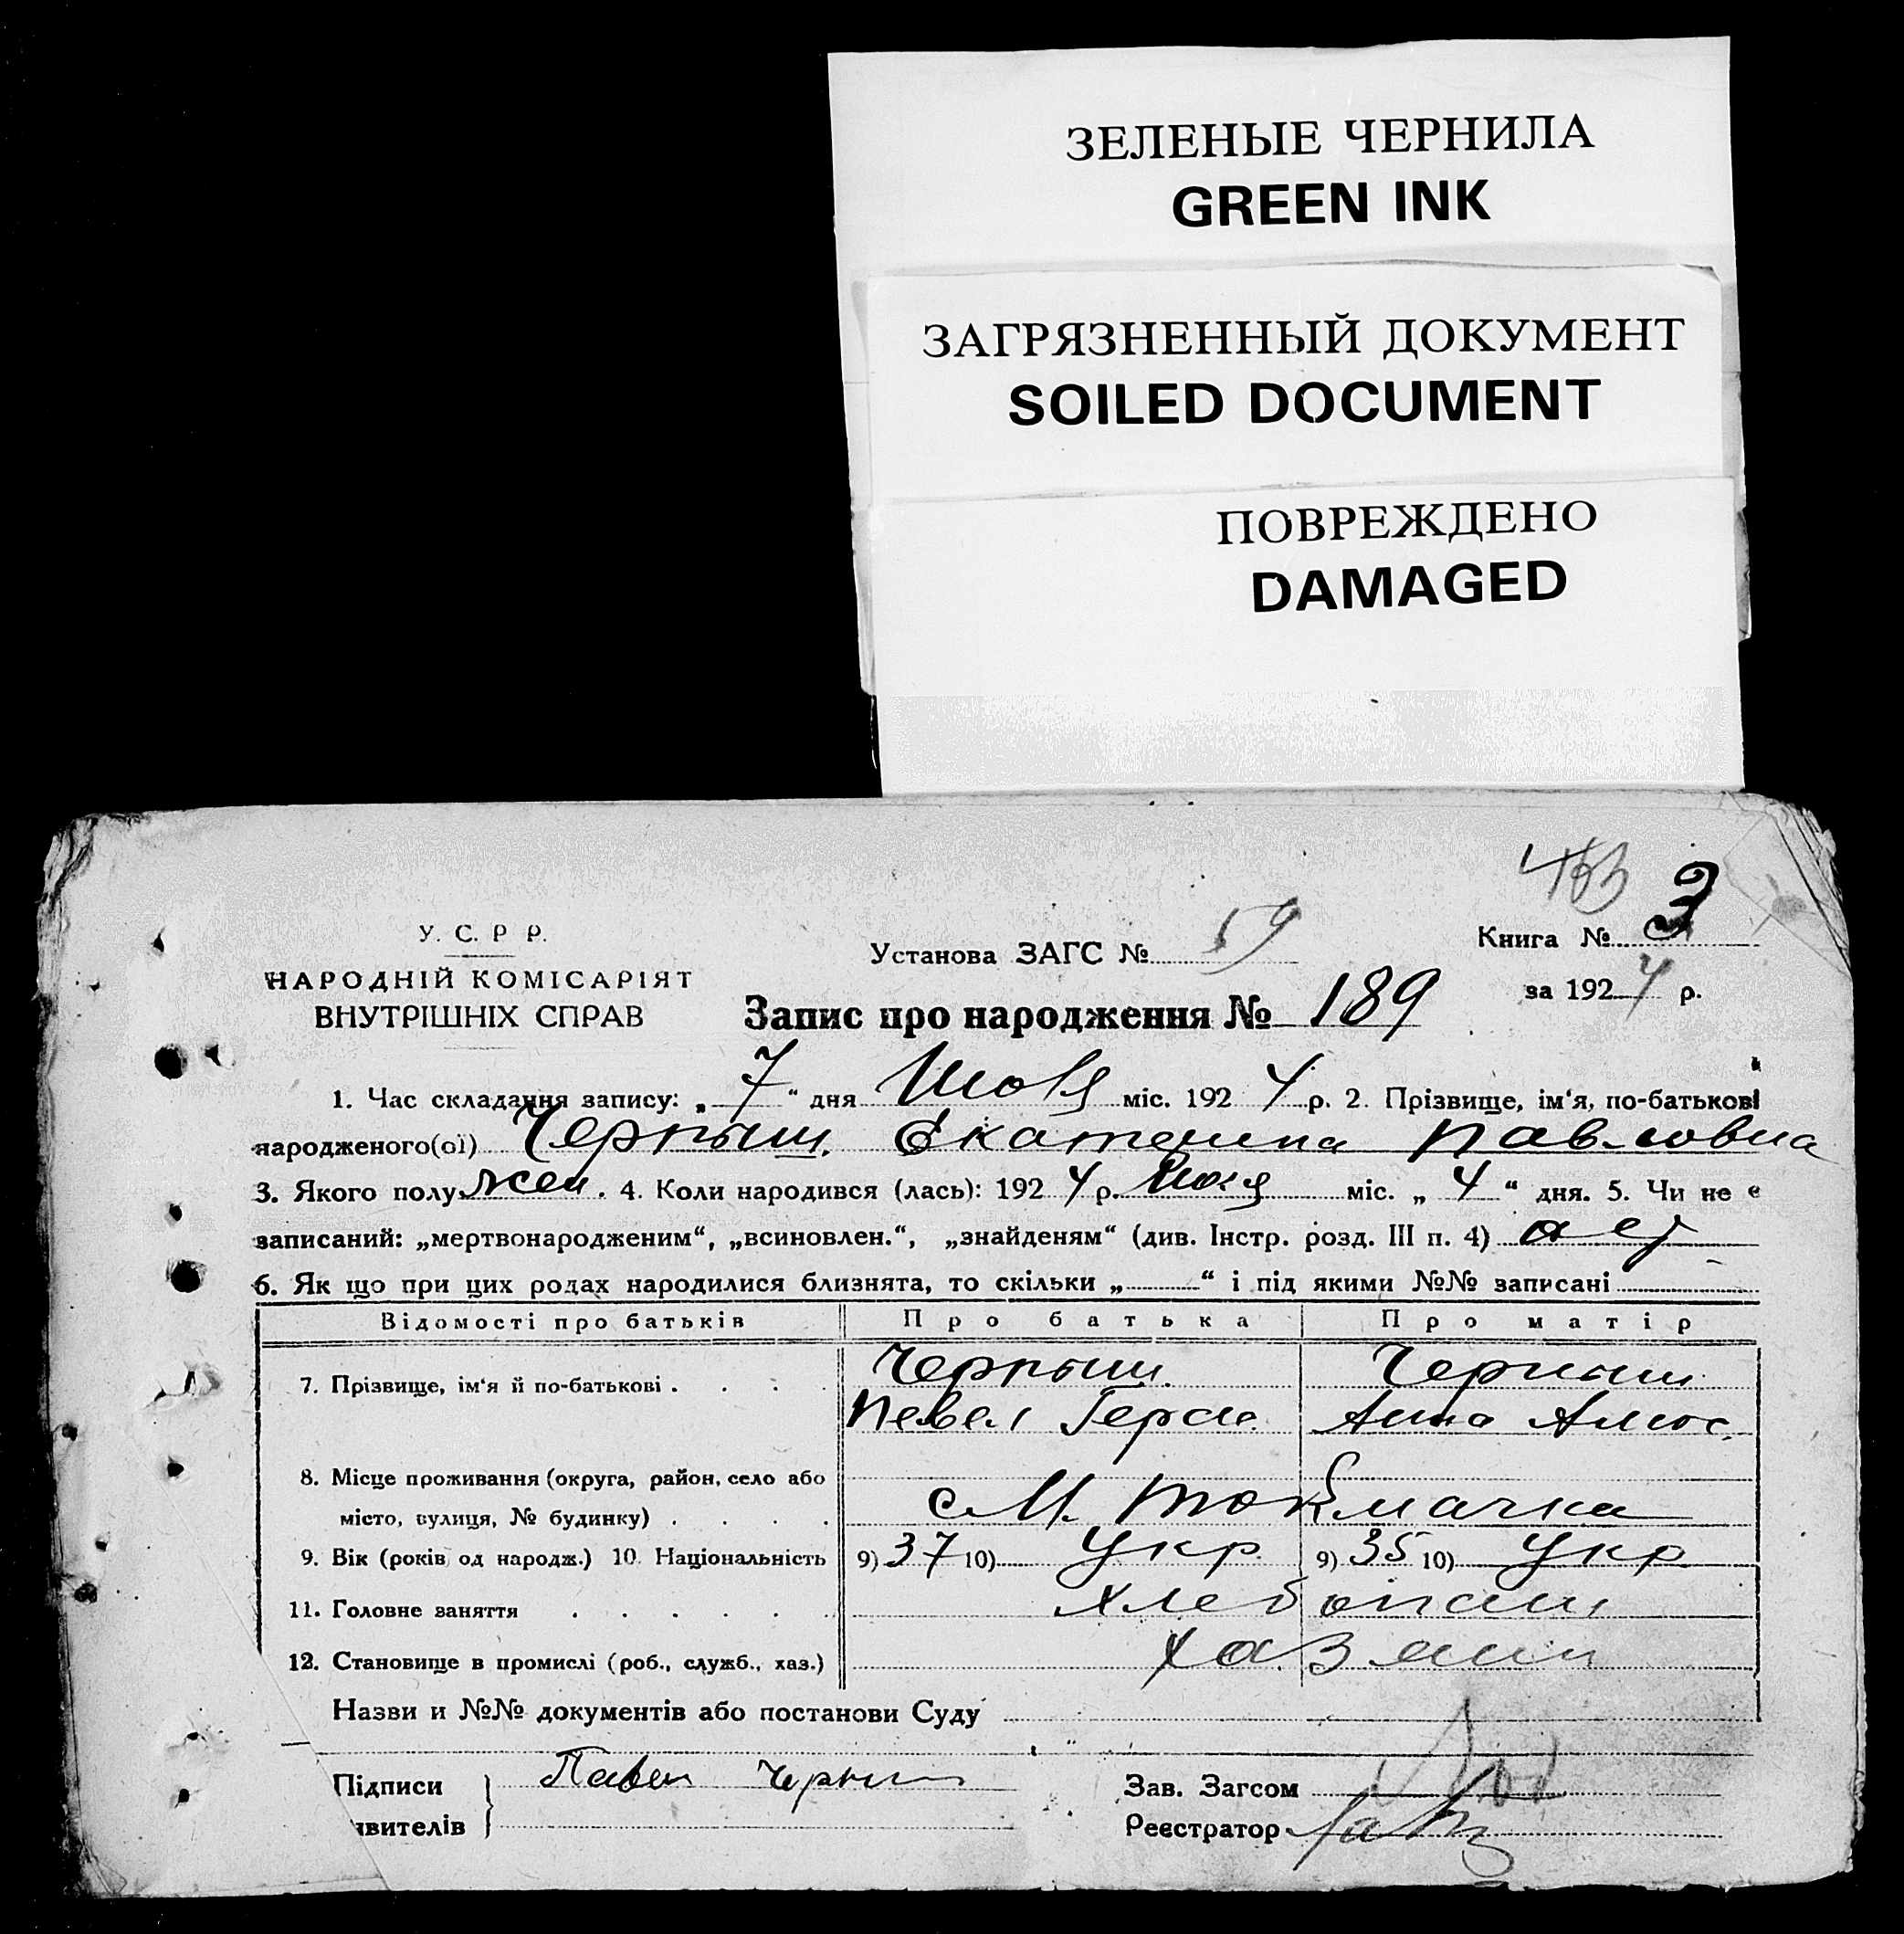 ЗЕЛЕНЫЕ ЧЕРНИЛА
GREEN INK
ЗАГРЯЗНЕННЫЙ ДОКУМЕНТ
SOILED DOCUMENT
ПОВРЕЖДЕНО
DAMAGED
У. С. Р Р.
НАРОДНІЙ КОМІСАРІЯТ
ВНУТРІШНІХ СПРАВ
Установа ЗАГС № 59
Книга № 3
за 1924 р.
Запис про народження № 189
1. Час складання запису: „ 7 “ дня міс. 1924 р. 2. Прізвище, ім‘я, по-батькові
народженого(ої) Черныш Екатерина Павловна
3. Якого полу жен. 4. Коли народився (лась): 1924 р. міс. „ 4 “ дня. 5. Чи не є
записаний: „мертвонародженим“, „всиновлен.“, „знайденям“ (див. Інстр. розд. III п. 4)
6. Як що при цих родах народилися близнята, то скільки „ “ і під якими №№ записані
Відомості про батьків Про батька Про матір
7. Прізвище, ім‘я й по-батькові . . . . Черныш Черныш
Павел Герас. Анна
8. Місце проживання (округа, район, село або
місто, вулиця, № будинку) . . . . с М. Токмачка
9. Вік (років од народж.) 10. Національність 9) 37 10) Укр 9) 35 10) Укр
11. Головне заняття . . . . . . Хлебопаш
12. Становище в промислі (роб., служб., хаз.) хазяин
Назви и №№ документів або постанови Суду
Підписи Павел Черныш Зав. Загсом
явителів Реєстратор